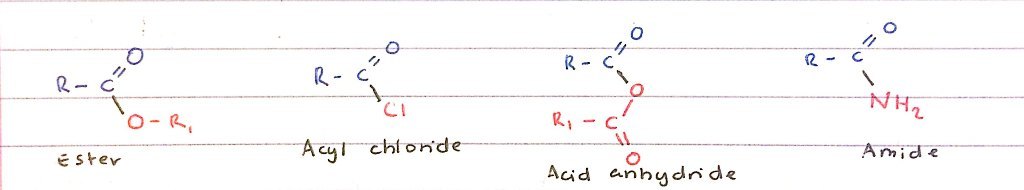 R - C = O
O - R1
Ester
R - C = O
Cl
Acyl chloride
R - C = O
O
R1 - C
O
Acid anhydride
R - C = O
NH2
Amide